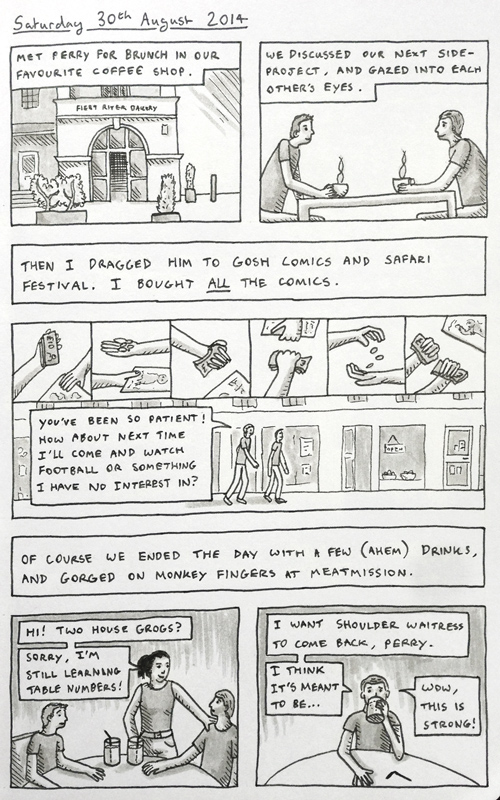 Saturday 30th August 2014
MET PERRY FOR BRUNCH IN OUR
FAVOURITE COFFEE SHOP.
FLEET RIVER BAKERY
WE DISCUSSED OUR NEXT SIDE-
PROJECT, AND GAZED INTO EACH
OTHER'S EYES.
THEN I DRAGGED HIM TO GOSH COMICS AND SAFARI
FESTIVAL. I BOUGHT ALL THE COMICS.
YOU'VE BEEN SO PATIENT!
HOW ABOUT NEXT TIME
I'LL COME AND WATCH
FOOTBALL OR SOMETHING
I HAVE NO INTEREST IN?
OPEN
OF COURSE WE ENDED THE DAY WITH A FEW (AHEM) DRINKS,
AND GORGED ON MONKEY FINGERS AT MEATMISSION.
HI! TWO HOUSE GROGS?
SORRY, I'M
STILL LEARNING
TABLE NUMBERS!
I WANT SHOULDER WAITRESS
TO COME BACK, PERRY.
I THINK
IT'S MEANT
TO BE...
WOW,
THIS IS
STRONG!